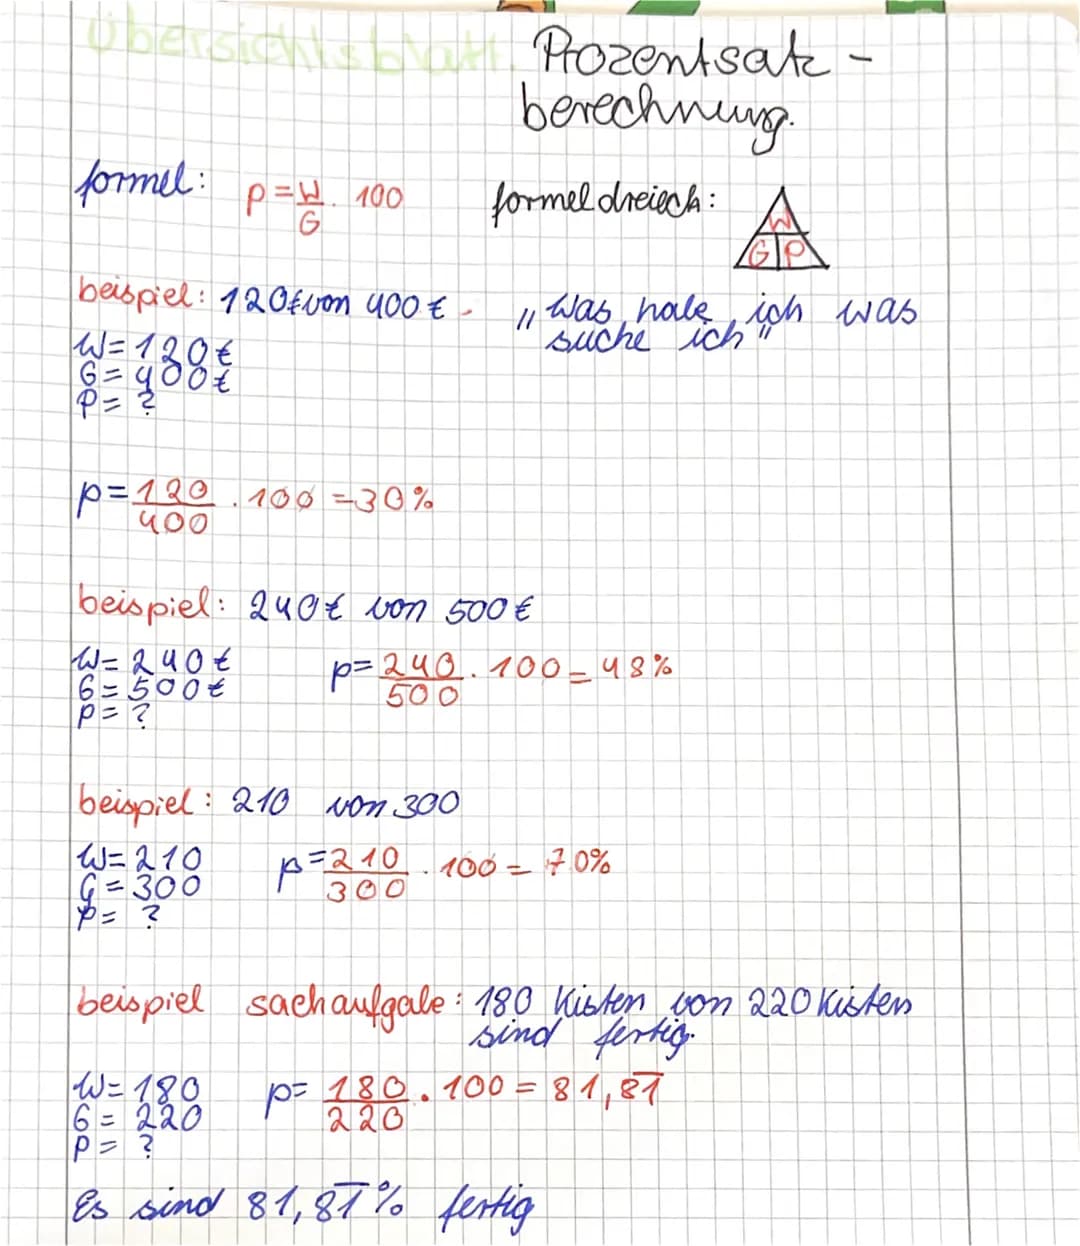 Übersichtsblatt. Prozentsatz-
berechnung.
formel: p = W/G · 100 formeldreieck: W G P
beispiel: 120€ von 400€. „Was habe ich was
suche ich"
W = 120€
G = 400€
P = ?
p = 120/400 · 100 = 30%
beispiel: 240€ von 500€
W = 240€
G = 500€
P = ?
p = 240/500 · 100 = 48%
beispiel: 210 von 300
W = 210
G = 300
p = ?
p = 210/300 · 100 = 70%
beispiel sachaufgabe: 180 Kisten von 220 Kisten
sind fertig.
W = 180
G = 220
P = ?
p = 180/220 · 100 = 81,8̅1̅
Es sind 81,8̅1̅% fertig